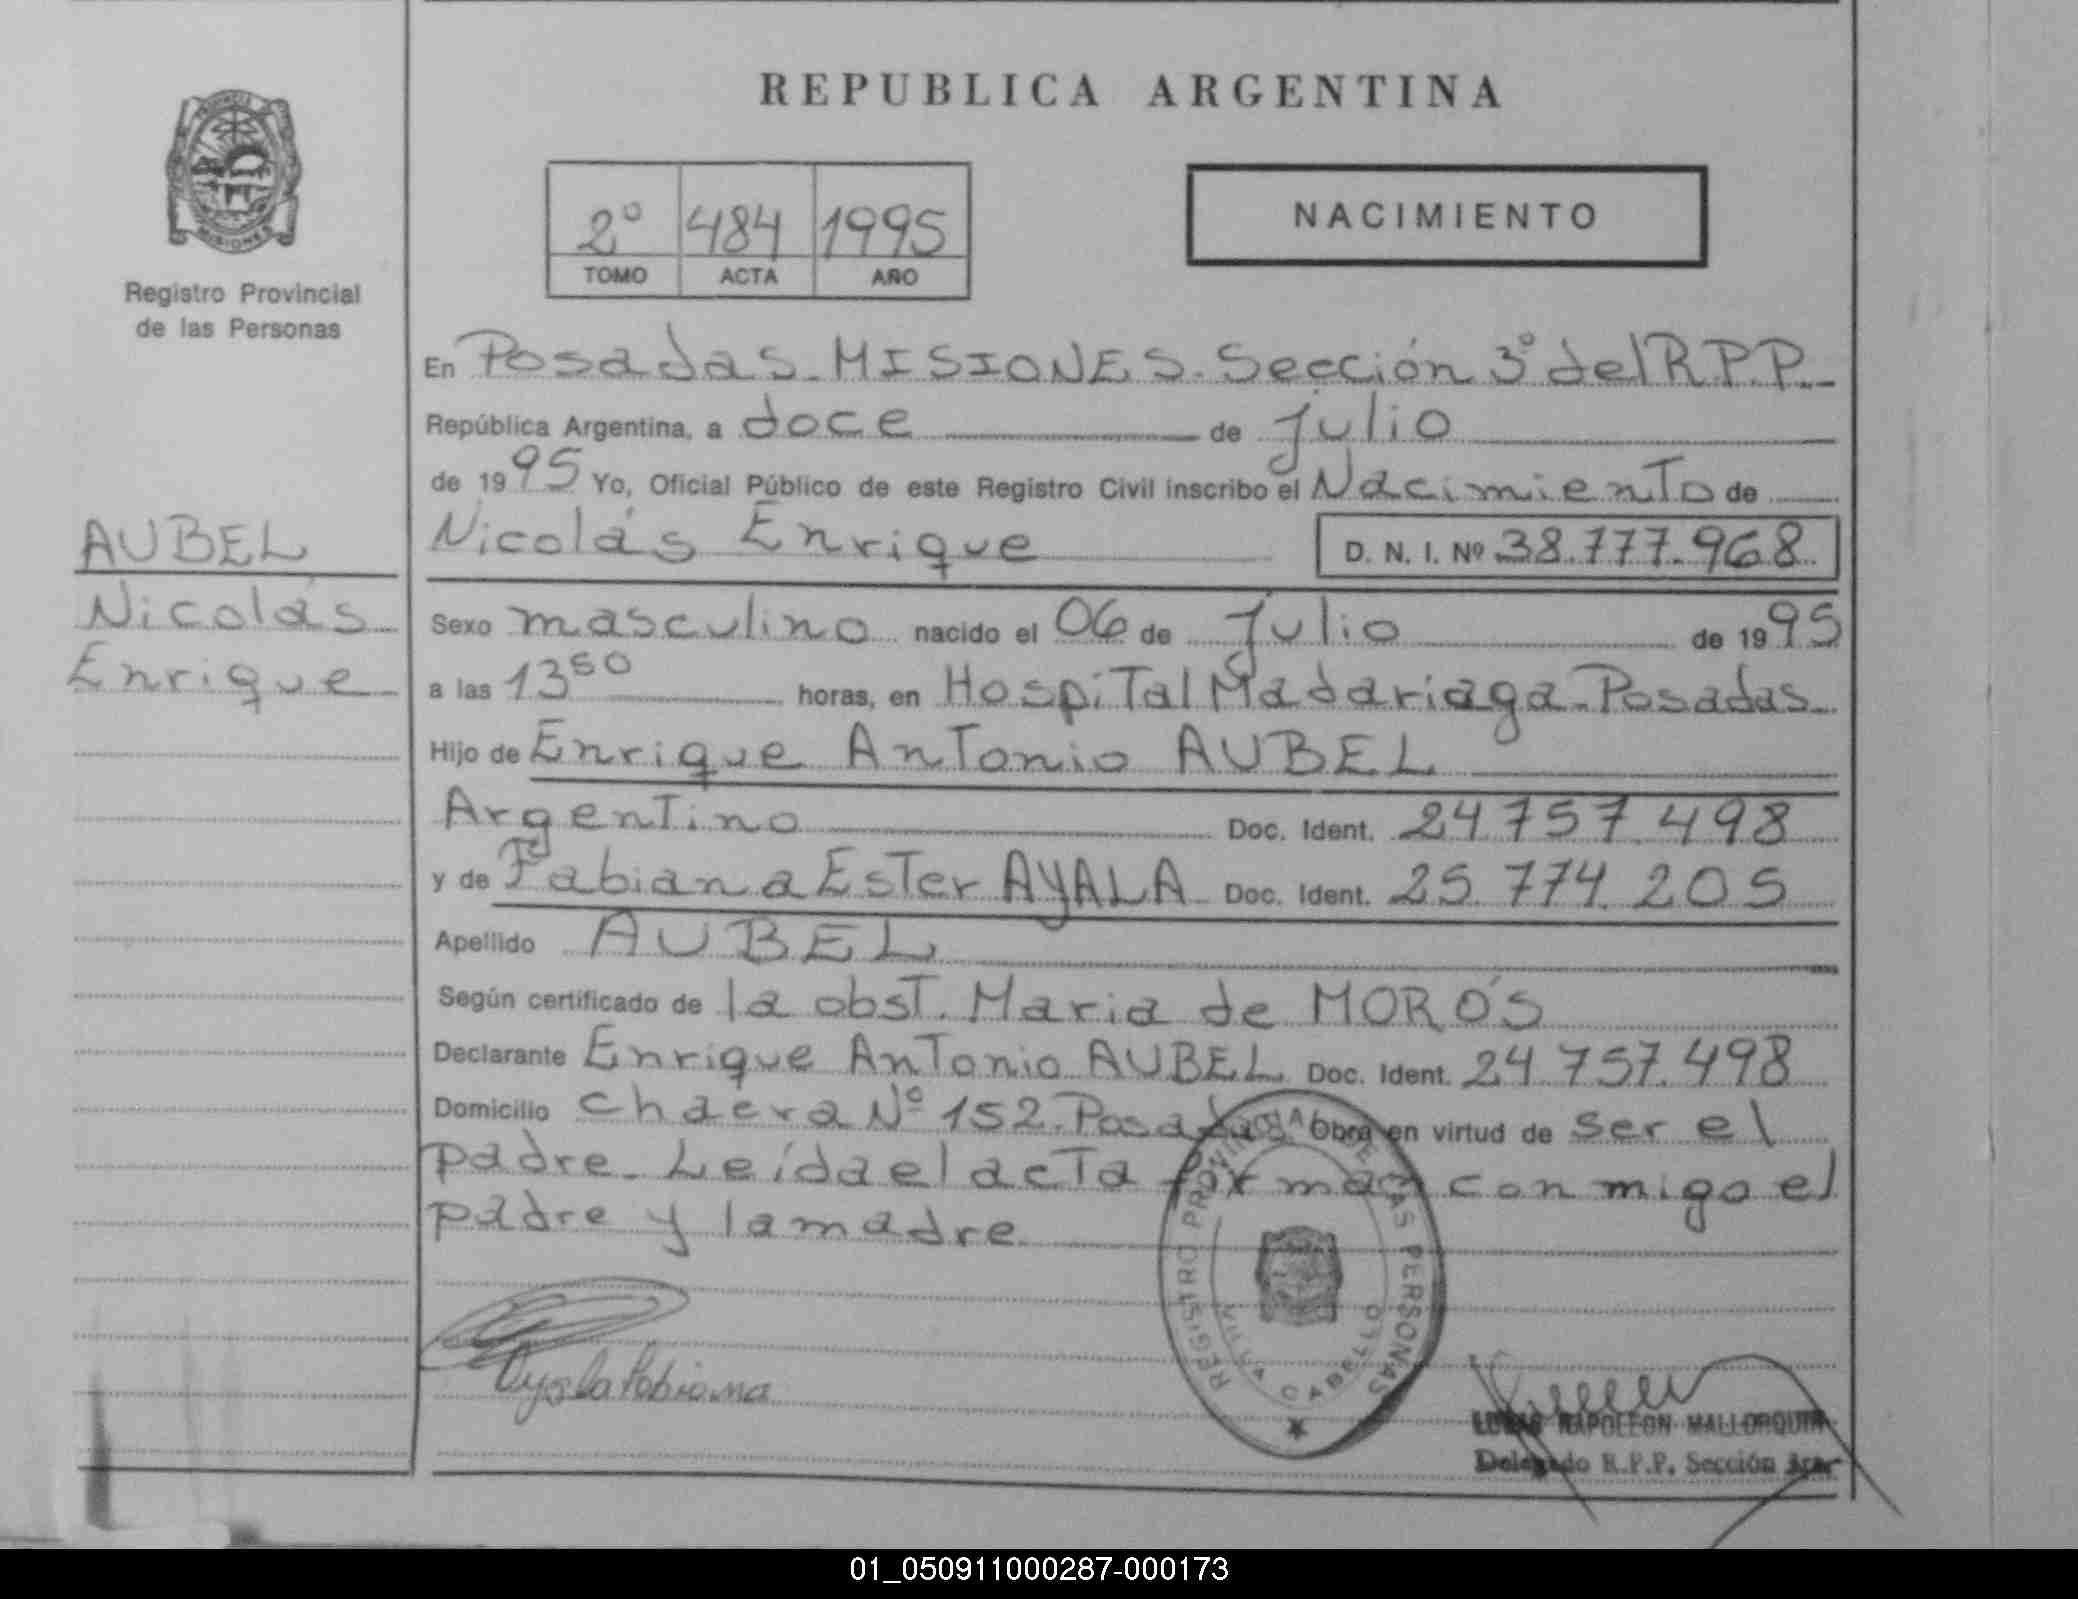 REPUBLICA ARGENTINA
PROVINCIA
MISIONES
Registro Provincial
de las Personas
2º 484 1995
TOMO ACTA AÑO
NACIMIENTO
En Posadas-MISIONES-Sección 3º del R.P.P.-
República Argentina, a doce de Julio
de 1995 Yo, Oficial Público de este Registro Civil inscribo el Nacimiento de
Nicolás Enrique D. N. I. Nº 38.777.968
AUBEL
Nicolás
Enrique
Sexo masculino nacido el 06 de Julio de 1995
a las 13⁵⁰ horas, en Hospital Madariaga-Posadas-
Hijo de Enrique Antonio AUBEL
Argentino Doc. Ident. 24.757.498
y de Fabiana Ester AYALA Doc. Ident. 25.774.205
Apellido AUBEL
Según certificado de la obst. Maria de MORÓS
Declarante Enrique Antonio AUBEL Doc. Ident. 24.757.498
Domicilio Chacra Nº 152-Posadas Obra en virtud de ser el
padre- Leída el acta firman conmigo el
padre y la madre
REGISTRO PROVINCIAL DE LAS PERSONAS
VILLA CABELLO
Ayala Fabiana
LUCAS NAPOLEON MALLORQUIN
Delegado R.P.P. Sección 3era
01_050911000287-000173